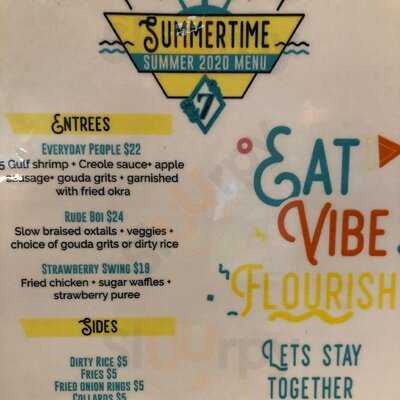 SUMMERTIME
SUMMER 2020 MENU
7
ENTREES
EVERYDAY PEOPLE $22
5 Gulf shrimp + Creole sauce+ apple
sausage+ gouda grits + garnished
with fried okra
RUDE BOI $24
Slow braised oxtails + veggies +
choice of gouda grits or dirty rice
STRAWBERRY SWING $19
Fried chicken + sugar waffles +
strawberry puree
SIDES
DIRTY RICE $5
FRIES $5
FRIED ONION RINGS $5
COLLARDS $5
EAT
VIBE
FLOURISH
LETS STAY
TOGETHER